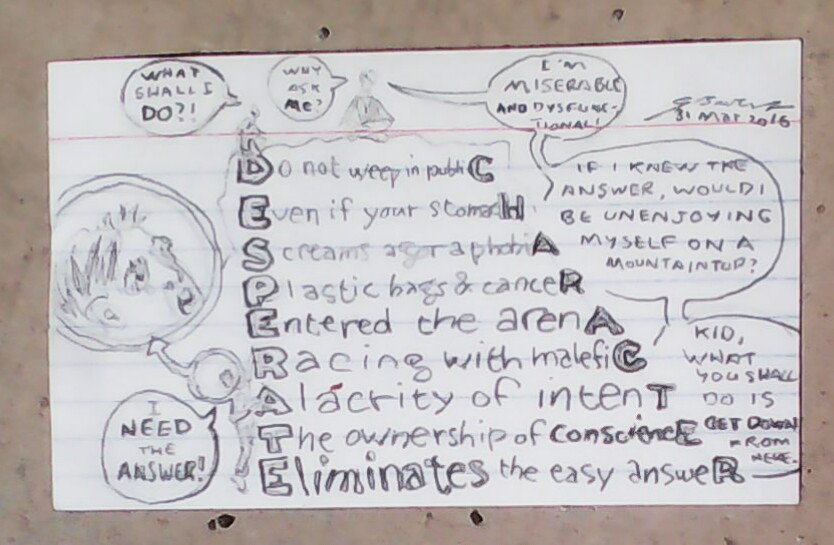 WHAT
SHALL I
DO?!
WHY
ASK
ME?
I'M
MISERABLE
AND DYSFUNC-
TIONAL!
31 Mar 2016
Do not weep in publiC
Even if your stomacH
Screams agoraphobiA
Plastic bags & canceR
Entered the arenA
Racing with malefiC
Alacrity of intenT
The ownership of consciencE
Eliminates the easy answeR
IF I KNEW THE
ANSWER, WOULD I
BE UNENJOYING
MYSELF ON A
MOUNTAINTOP?
KID,
WHAT
YOU SHALL
DO IS
GET DOWN
FROM
HERE.
I
NEED
THE
ANSWER!